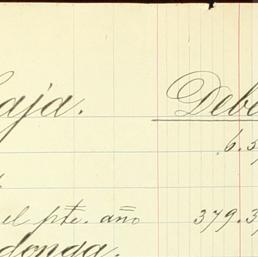 Caja. Debe
6.5
el pte. año 379.3
donga.